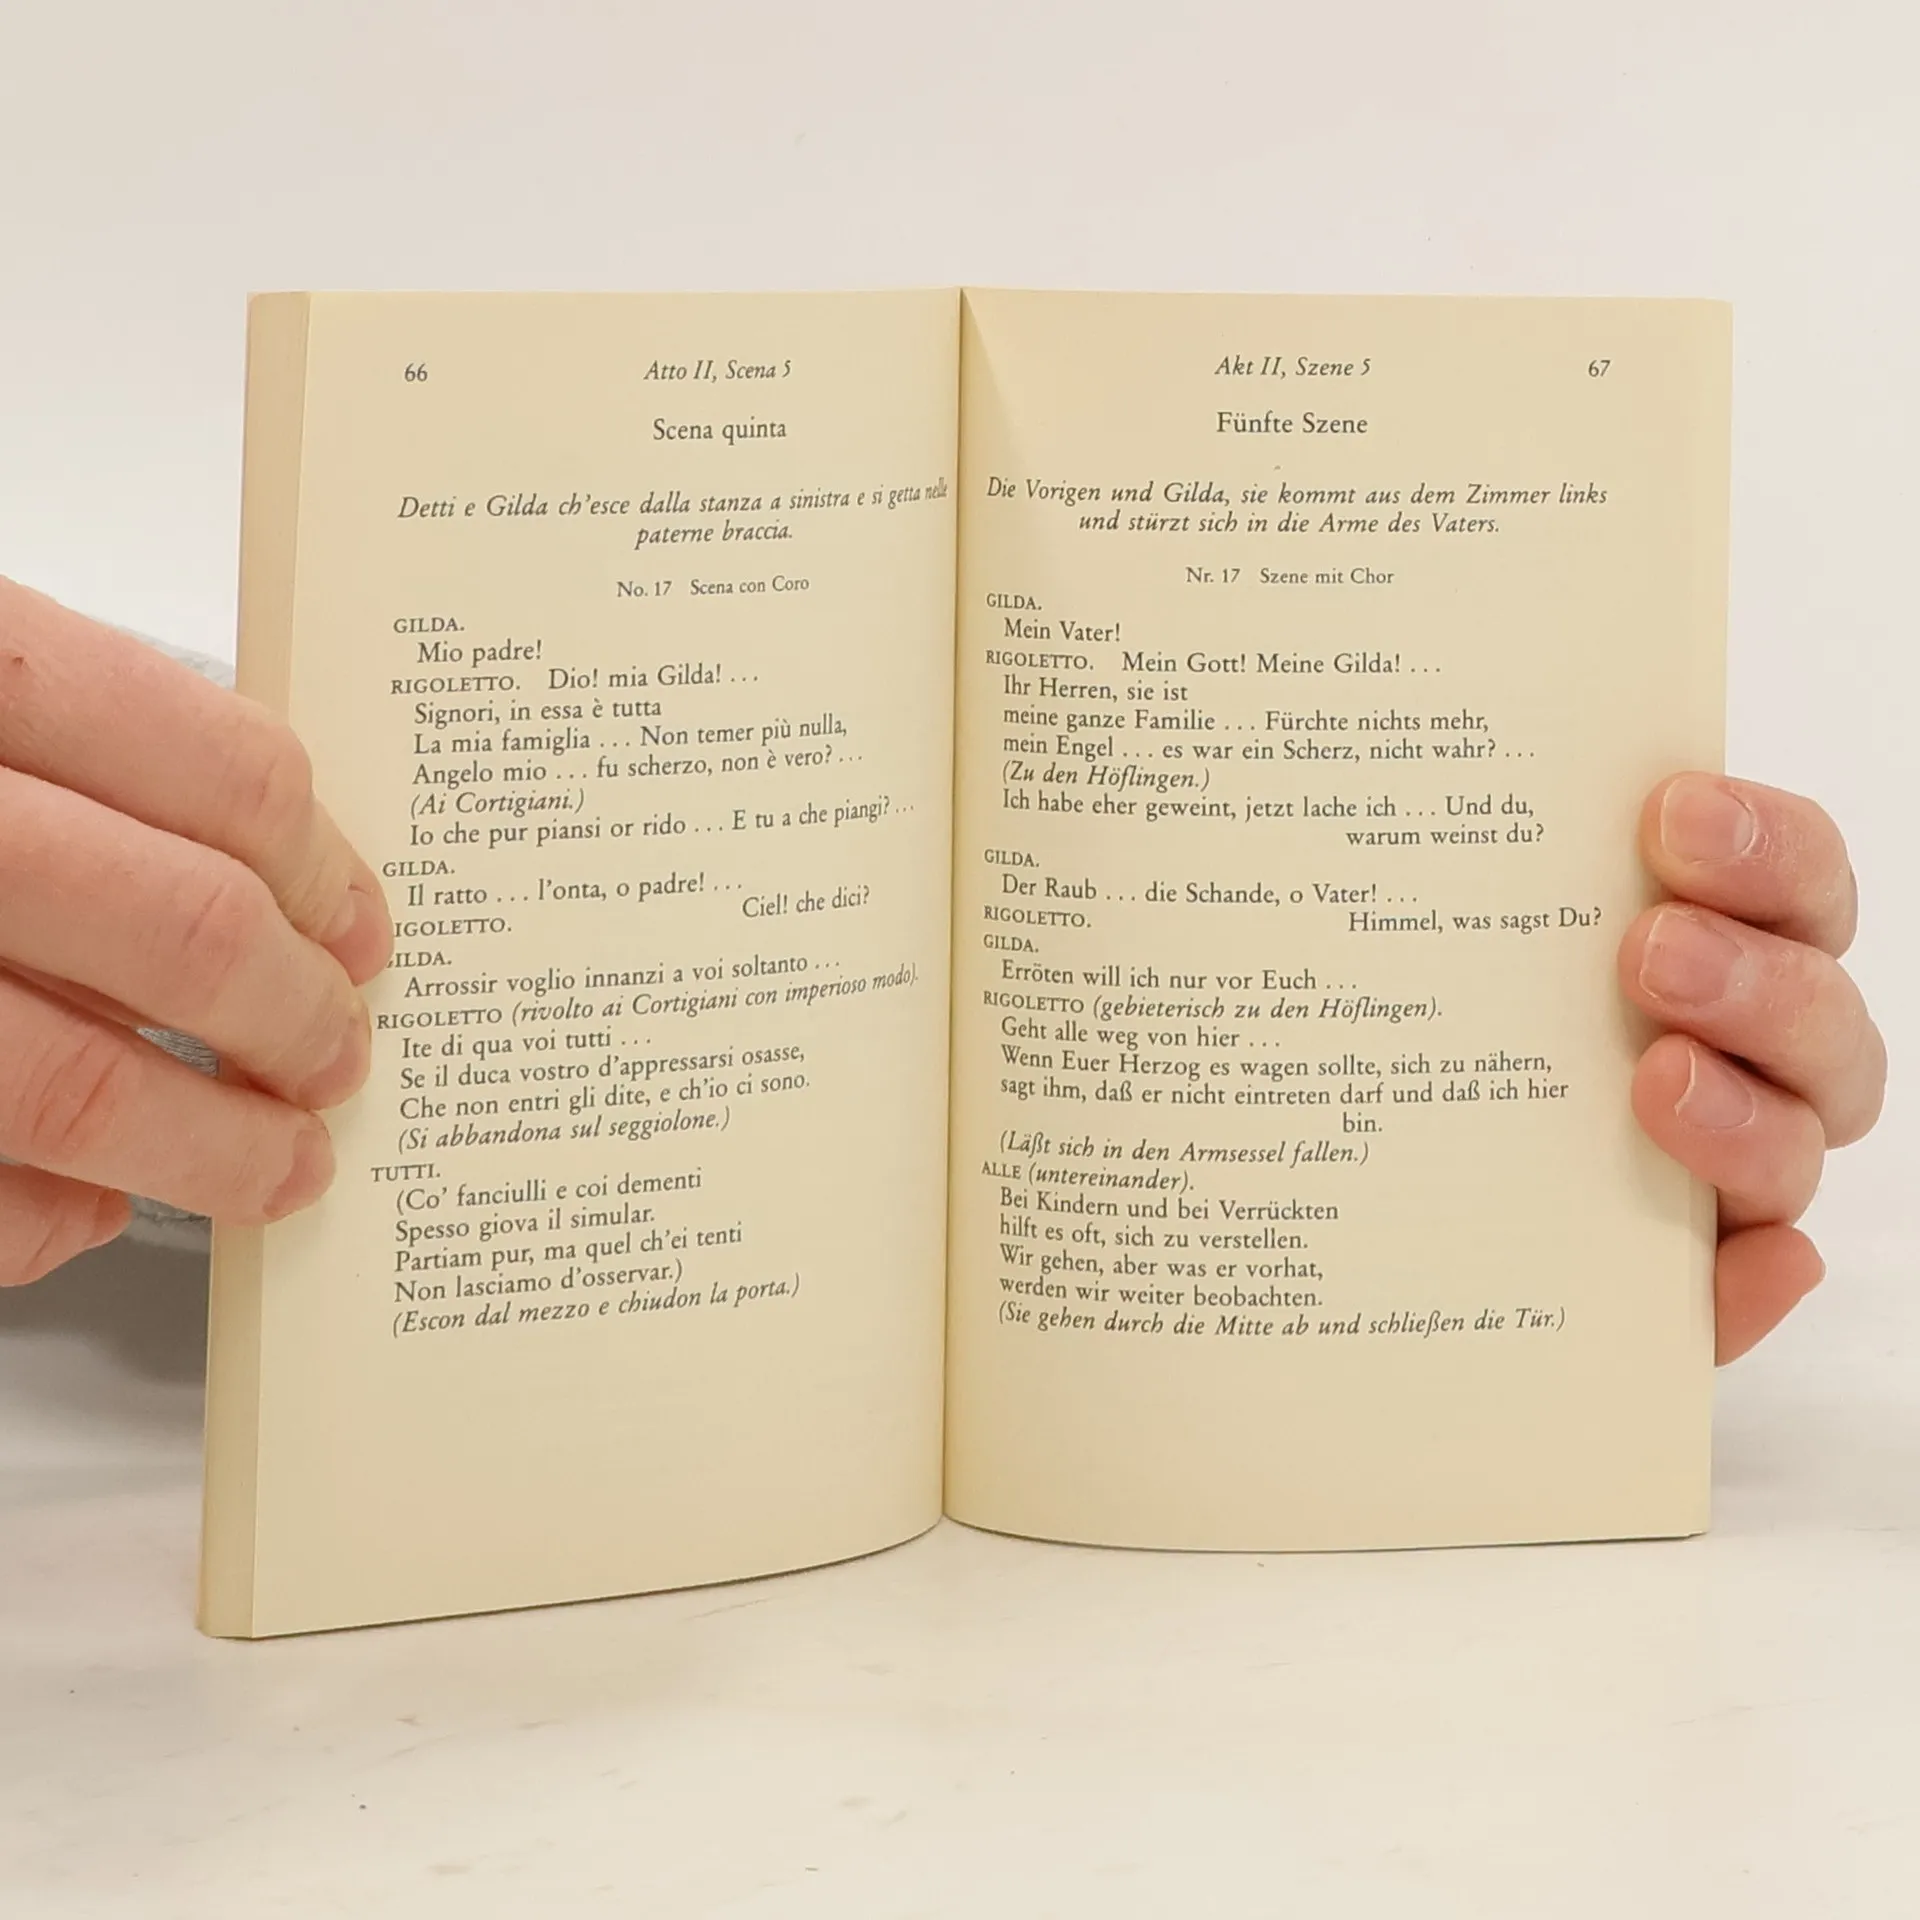 66 Atto II, Scena 5
Scena quinta
Detti e Gilda ch'esce dalla stanza a sinistra e si getta nelle
paterne braccia.
No. 17 Scena con Coro
GILDA.
Mio padre!
RIGOLETTO. Dio! mia Gilda! ...
Signori, in essa è tutta
La mia famiglia ... Non temer più nulla,
Angelo mio ... fu scherzo, non è vero? ...
(Ai Cortigiani.)
Io che pur piansi or rido ... E tu a che piangi? ...
GILDA.
Il ratto ... l'onta, o padre! ...
IGOLETTO. Ciel! che dici?
ILDA.
Arrossir voglio innanzi a voi soltanto ...
RIGOLETTO (rivolto ai Cortigiani con imperioso modo).
Ite di qua voi tutti ...
Se il duca vostro d'appressarsi osasse,
Che non entri gli dite, e ch'io ci sono.
(Si abbandona sul seggiolone.)
TUTTI.
(Co' fanciulli e coi dementi
Spesso giova il simular.
Partiam pur, ma quel ch'ei tenti
Non lasciamo d'osservar.)
(Escon dal mezzo e chiudon la porta.)
Akt II, Szene 5 67
Fünfte Szene
Die Vorigen und Gilda, sie kommt aus dem Zimmer links
und stürzt sich in die Arme des Vaters.
Nr. 17 Szene mit Chor
GILDA.
Mein Vater!
RIGOLETTO. Mein Gott! Meine Gilda! ...
Ihr Herren, sie ist
meine ganze Familie ... Fürchte nichts mehr,
mein Engel ... es war ein Scherz, nicht wahr? ...
(Zu den Höflingen.)
Ich habe eher geweint, jetzt lache ich ... Und du,
warum weinst du?
GILDA.
Der Raub ... die Schande, o Vater! ...
RIGOLETTO. Himmel, was sagst Du?
GILDA.
Erröten will ich nur vor Euch ...
RIGOLETTO (gebieterisch zu den Höflingen).
Geht alle weg von hier ...
Wenn Euer Herzog es wagen sollte, sich zu nähern,
sagt ihm, daß er nicht eintreten darf und daß ich hier
bin.
(Läßt sich in den Armsessel fallen.)
ALLE (untereinander).
Bei Kindern und bei Verrückten
hilft es oft, sich zu verstellen.
Wir gehen, aber was er vorhat,
werden wir weiter beobachten.
(Sie gehen durch die Mitte ab und schließen die Tür.)